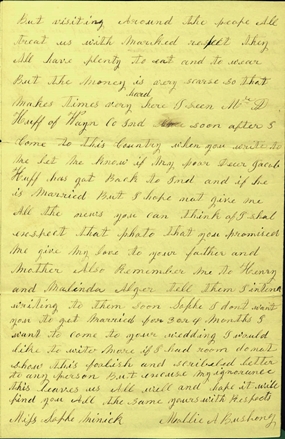 But visiting Around the people All
treat us with Marked respect they
All have plenty to eat and to wear
But the Money is very scarse so that
hard
Makes times very here I seen Mr D
Huff of Wayn Co Ind soon after I
Come to this Country when you write to
me Let me know if My poor Dear Jacob
Huff has got Back to Ind and if he
is Married But I hope not give me
All the news you can think of I shal
exspect that photo that you promised
Me give My Love to your father and
Mother Also Remember me to Henry
and Malinda Alger tell them I intend
writing to them soon Sophe I dont want
you to get Married for 3 or 4 Months I
want to come to your wedding I would
like to write More if I had room do not
show this foolish and scribaled letter
to any person But excuse My ignorance
this leaves us All well and hope it will
find you All the same yours with Respects
Miss Sophe Minick Mollie A Bushong